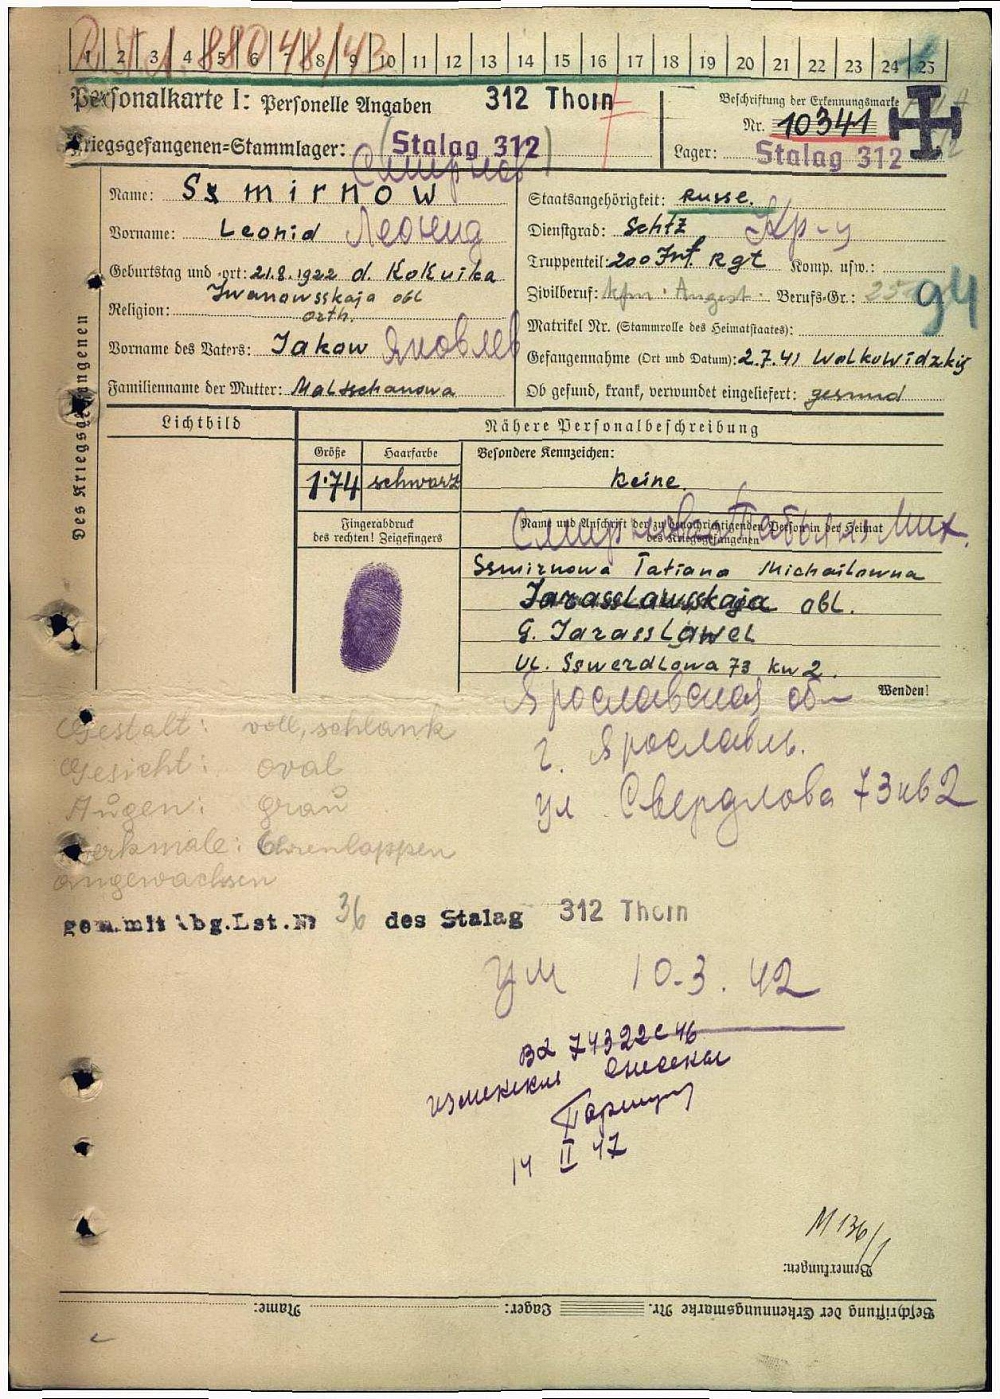 1 2 3 4 5 6 7 8 9 10 11 12 13 14 15 16 17 18 19 20 21 22 23 24 25
88048/43
Personalkarte I: Personelle Angaben
312 Thorn
Beschriftung der Erkennungsmarke
Nr. 10341
Kriegsgefangenen-Stammlager: Stalag 312
Lager: Stalag 312
Смирнов
Des Kriegsgefangenen
Name: Ssmirnow
Staatsangehörigkeit: Russe.
Vorname: Leonid Леонид
Dienstgrad: Schtz Кр-ц
Geburtstag und -ort: 21.8.1922 d. Kokuika
Truppenteil: 200 Inf. Rgt Komp. usw.:
Iwanowsskaja obl
Zivilberuf: kfm. Angest. Berufs-Gr.: 25 94
Religion: orth.
Matrikel Nr. (Stammrolle des Heimatstaates):
Vorname des Vaters: Jakow Яковлев
Gefangennahme (Ort und Datum): 2.7.41 Wolkowidzkij
Familienname der Mutter: Maltschanowa
Ob gesund, krank, verwundet eingeliefert: gesund
Lichtbild
Nähere Personalbeschreibung
Größe
Haarfarbe
Besondere Kennzeichen:
1.74
schwarz
keine
Fingerabdruck
des rechten! Zeigefingers
Name und Anschrift der zu benachrichtigenden Person in der Heimat
des Kriegsgefangenen
Смирнова Татьяна Мих.
Ssmirnowa Tatiana Michailowna
Jarasslawsskaja obl.
G. Jarasslawel
Ul. Sswerdlowa 73 kw 2.
Wenden!
Ярославская об-
г. Ярославль.
ул Свердлова 73 кв 2
Gestalt: voll, schlank
Gesicht: oval
Augen: grau
Merkmale: Ohrenlappen
angewachsen
gem. mit Abg.Lst.Nr 36 des Stalag 312 Thorn
ум 10.3.42
Вх 74322с 46
14 II 47
M 136/1
Bemerkungen:
Beschriftung der Erkennungsmarke Nr. Lager: Name: